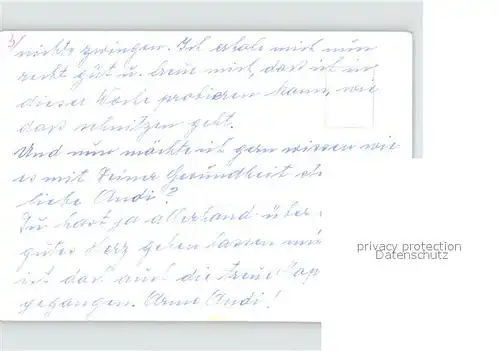 3/
nichts zwingen. Ich erhole mich nun
recht gut u. freue mich, dass ich in
dieser Woche probieren kann, wie
das schnitzen geht.
Und nun möchte ich gern wissen wie
es mit Deiner Gesundheit st
liebe Andi?
Du hast ja allerhand über
gutes Herz gehen lassen
ist das auch die treue
gegangen. Arme Andi!
privacy protection
Datenschutz